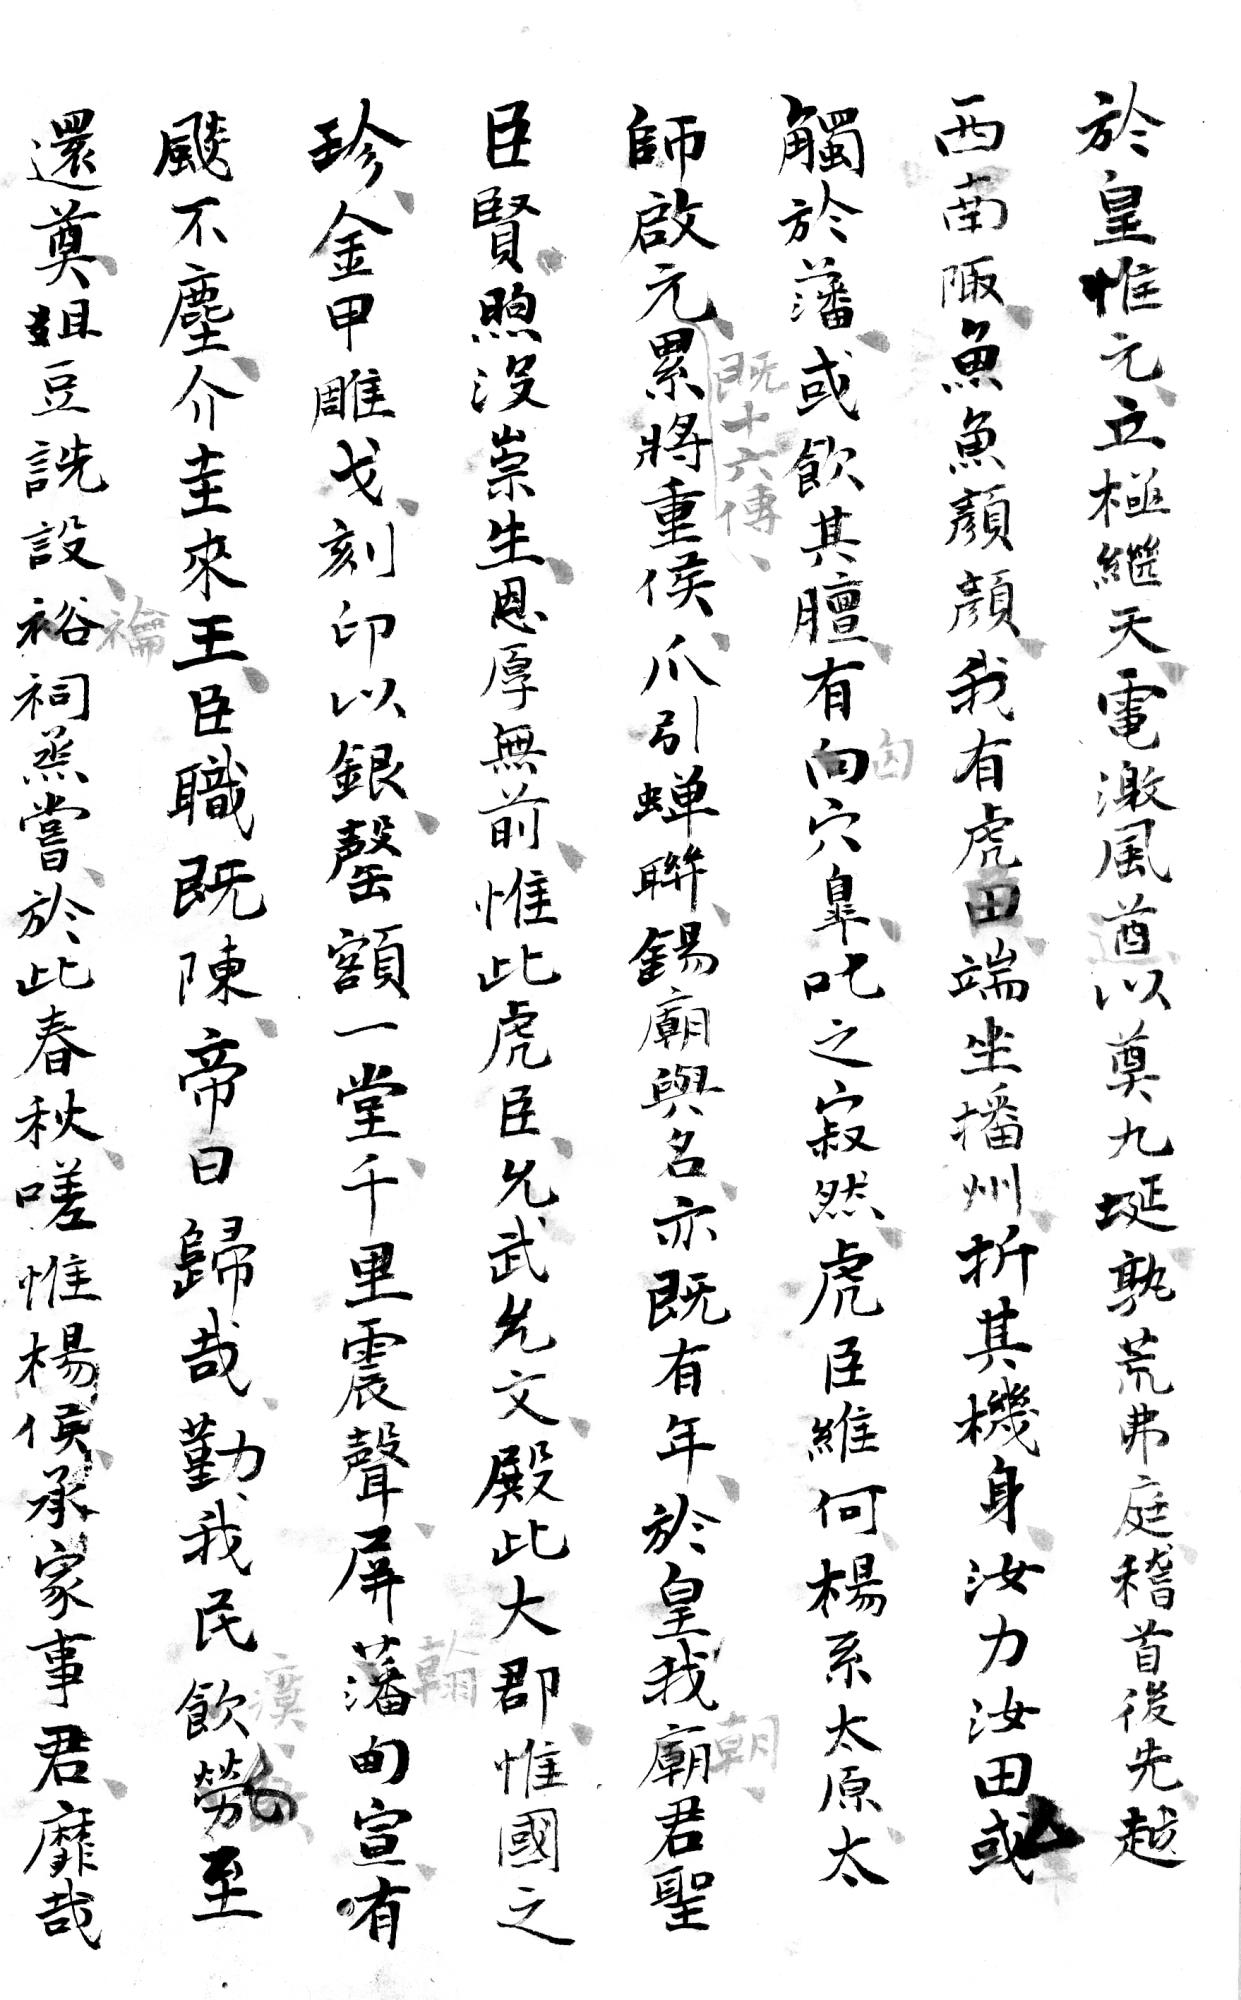 於皇惟元立極繼天電激風遒以奠九埏孰荒弗庭稽首後先越
西南陬魚魚顏顏我有虎田端坐播州折其機身汝力汝田或
觸於藩或飲其膻有向穴臯叱之寂然虎臣維何楊系太原太
師啟元累將重侯爪引蟬聯錫廟與名亦既有年於皇我廟君聖
臣賢煦沒崇生恩厚無前惟此虎臣允武允文殿此大郡惟國之
珍金甲雕戈刻印以銀罄額一堂千里震聲屏藩甸宣有
颷不塵介圭來王臣職既陳帝曰歸哉勤我民飲勞至
還奠俎豆詵設裕祠烝嘗於此春秋嗟惟楊侯承家事君靡哉
既十六傳
匈
朝
翰
漠
禴